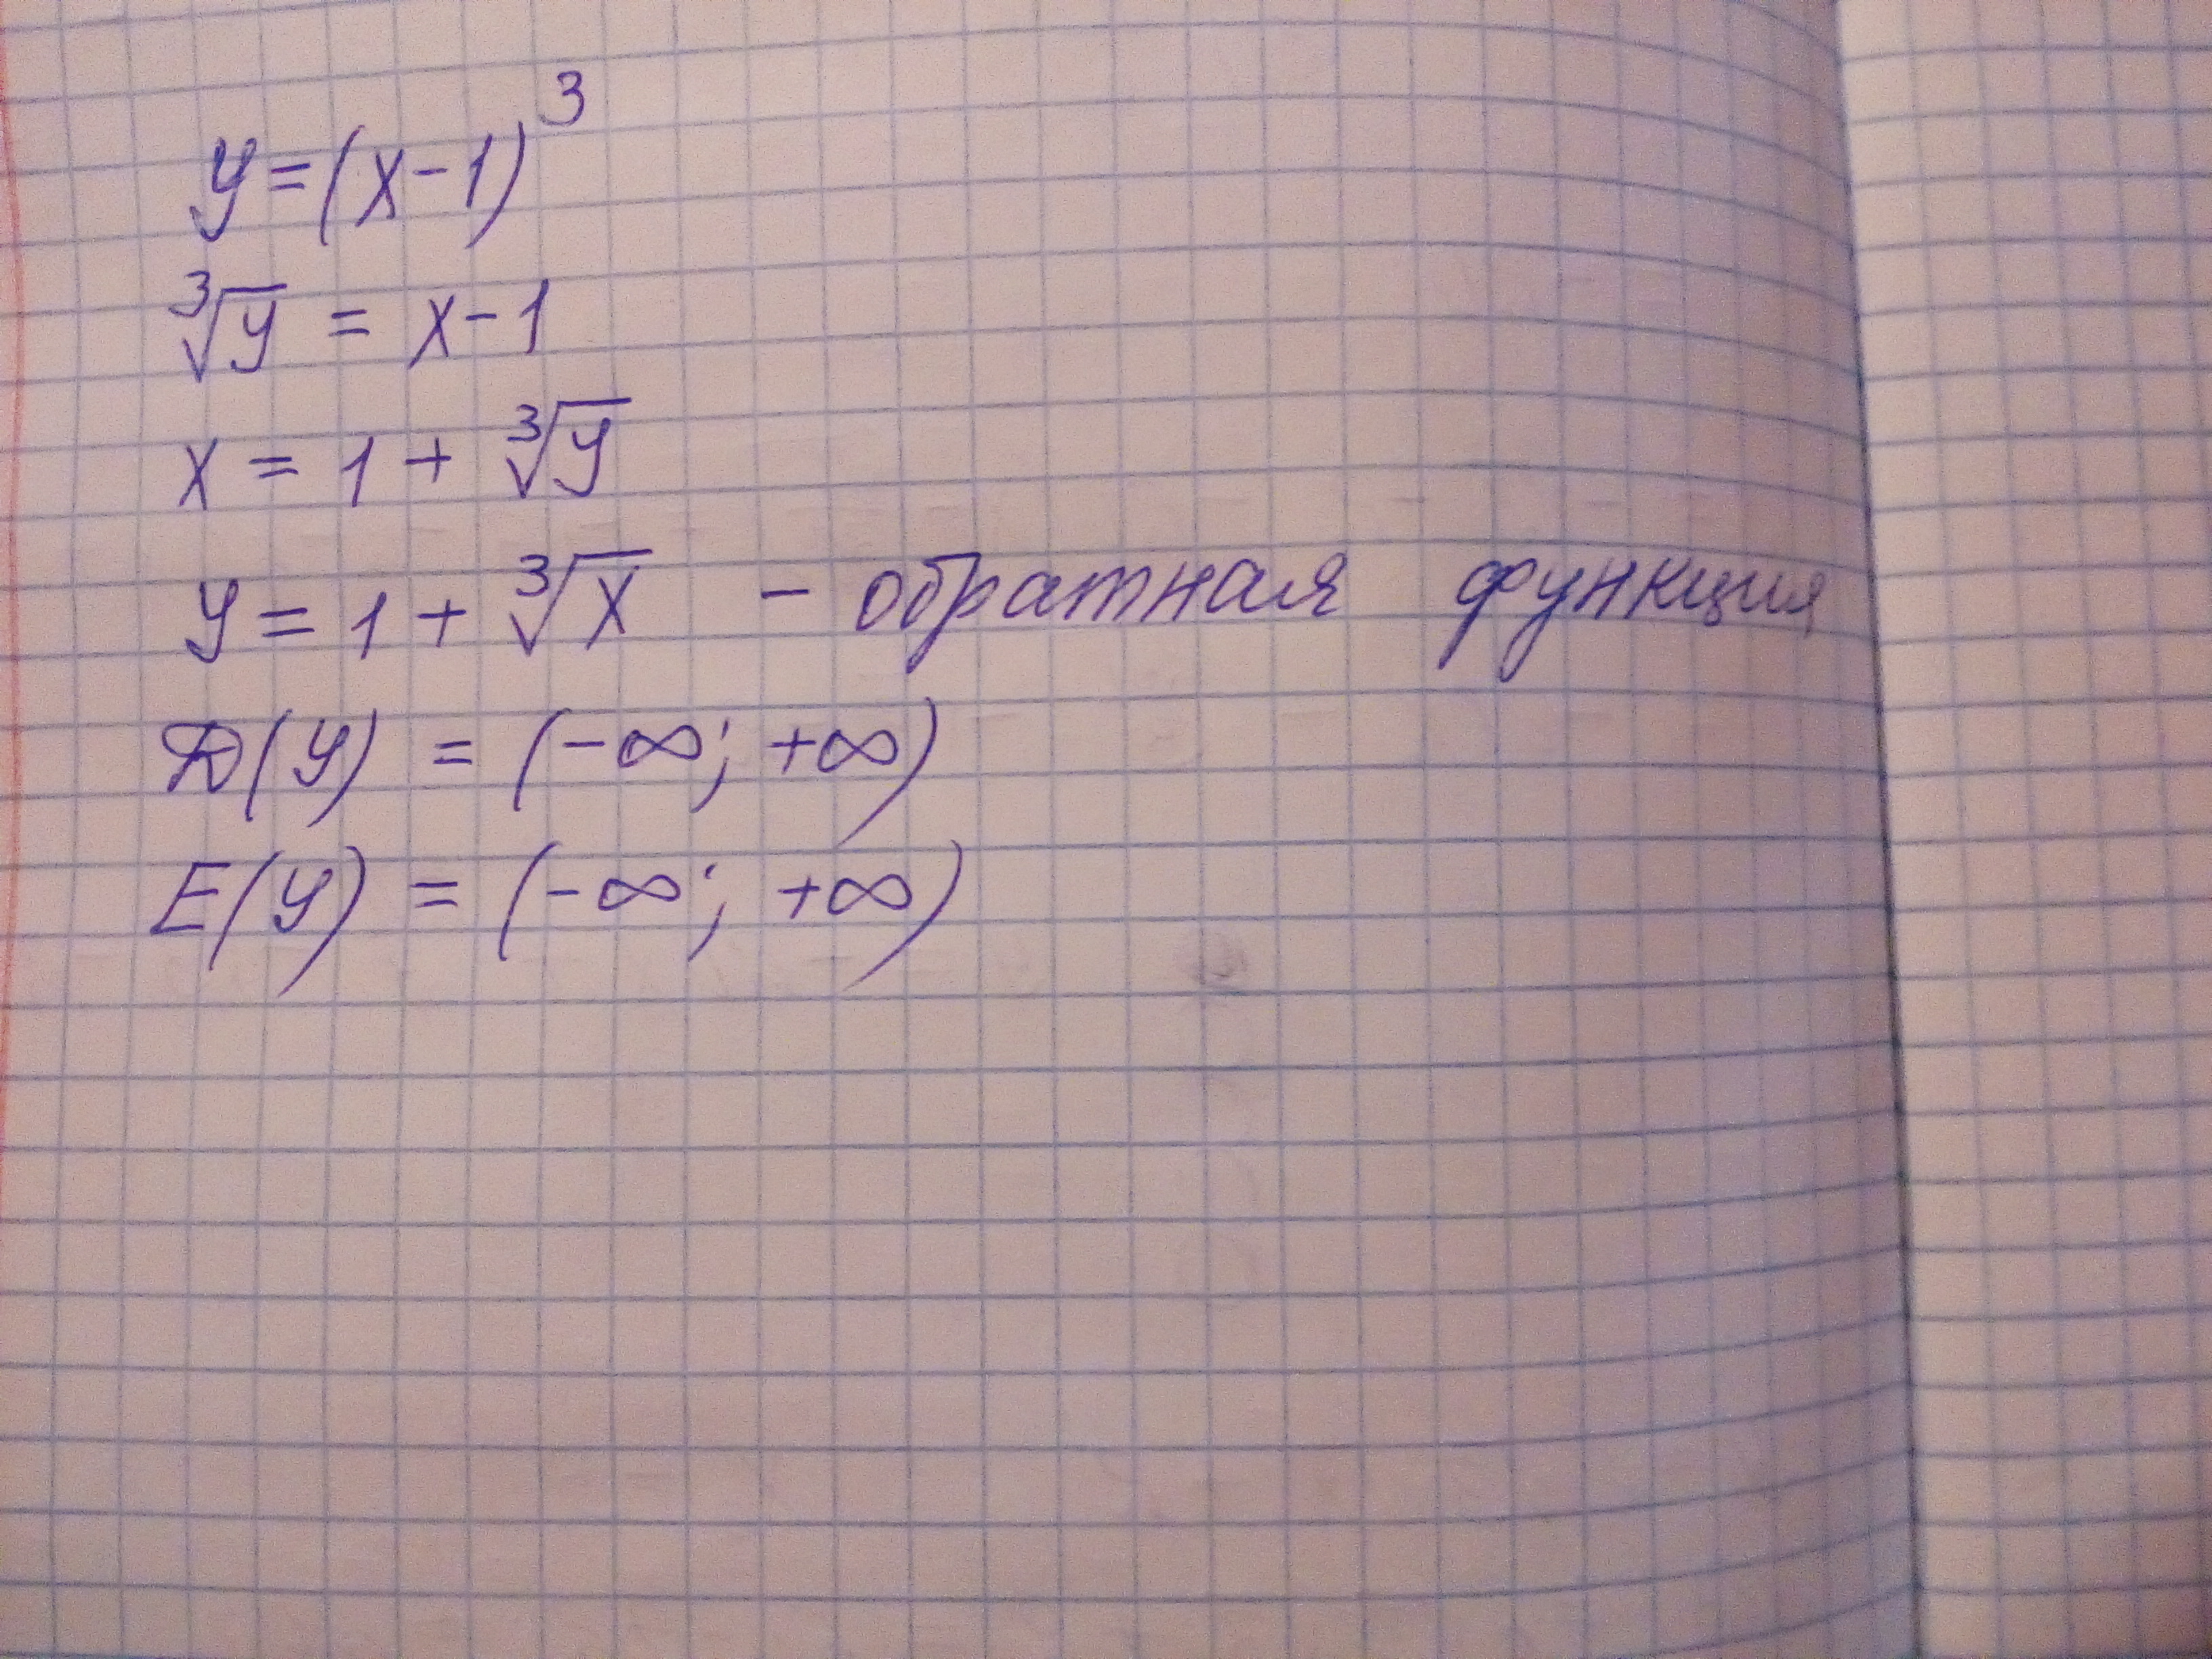 y = (x - 1)³
∛y = x - 1
x = 1 + ∛y
y = 1 + ∛x - обратная функция
D(y) = (-∞; +∞)
E(y) = (-∞; +∞)